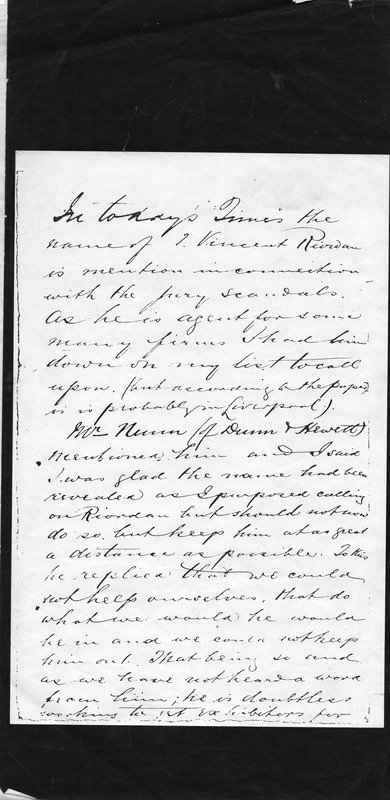 In todays Times the
name of J. Vincent Riordan
is mention in connection
with the Jury scandals.
As he is agent for some
many firms I had him
down on my list to call
upon. (but according to the papers
is is probably in Liverpool).
Mr Nunn (of Dunn & Hewett)
mentioned him and I said
I was glad the name had been
revealed as I purposed calling
on Riordan but should not now
do so, but keep him at as great
a distance as possible. To this
he replied that we could
not help ourselves, that do
what we would he would
be in and we could not keep
him out. That being so and
as we have not heard a word
from him; he is doubtless
working to get exhibitors for